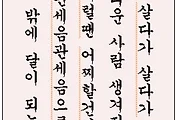 살다가 살다가
사람 생겨
럴땐 어찌할건
관세음관세음으로
밖에 달이 되